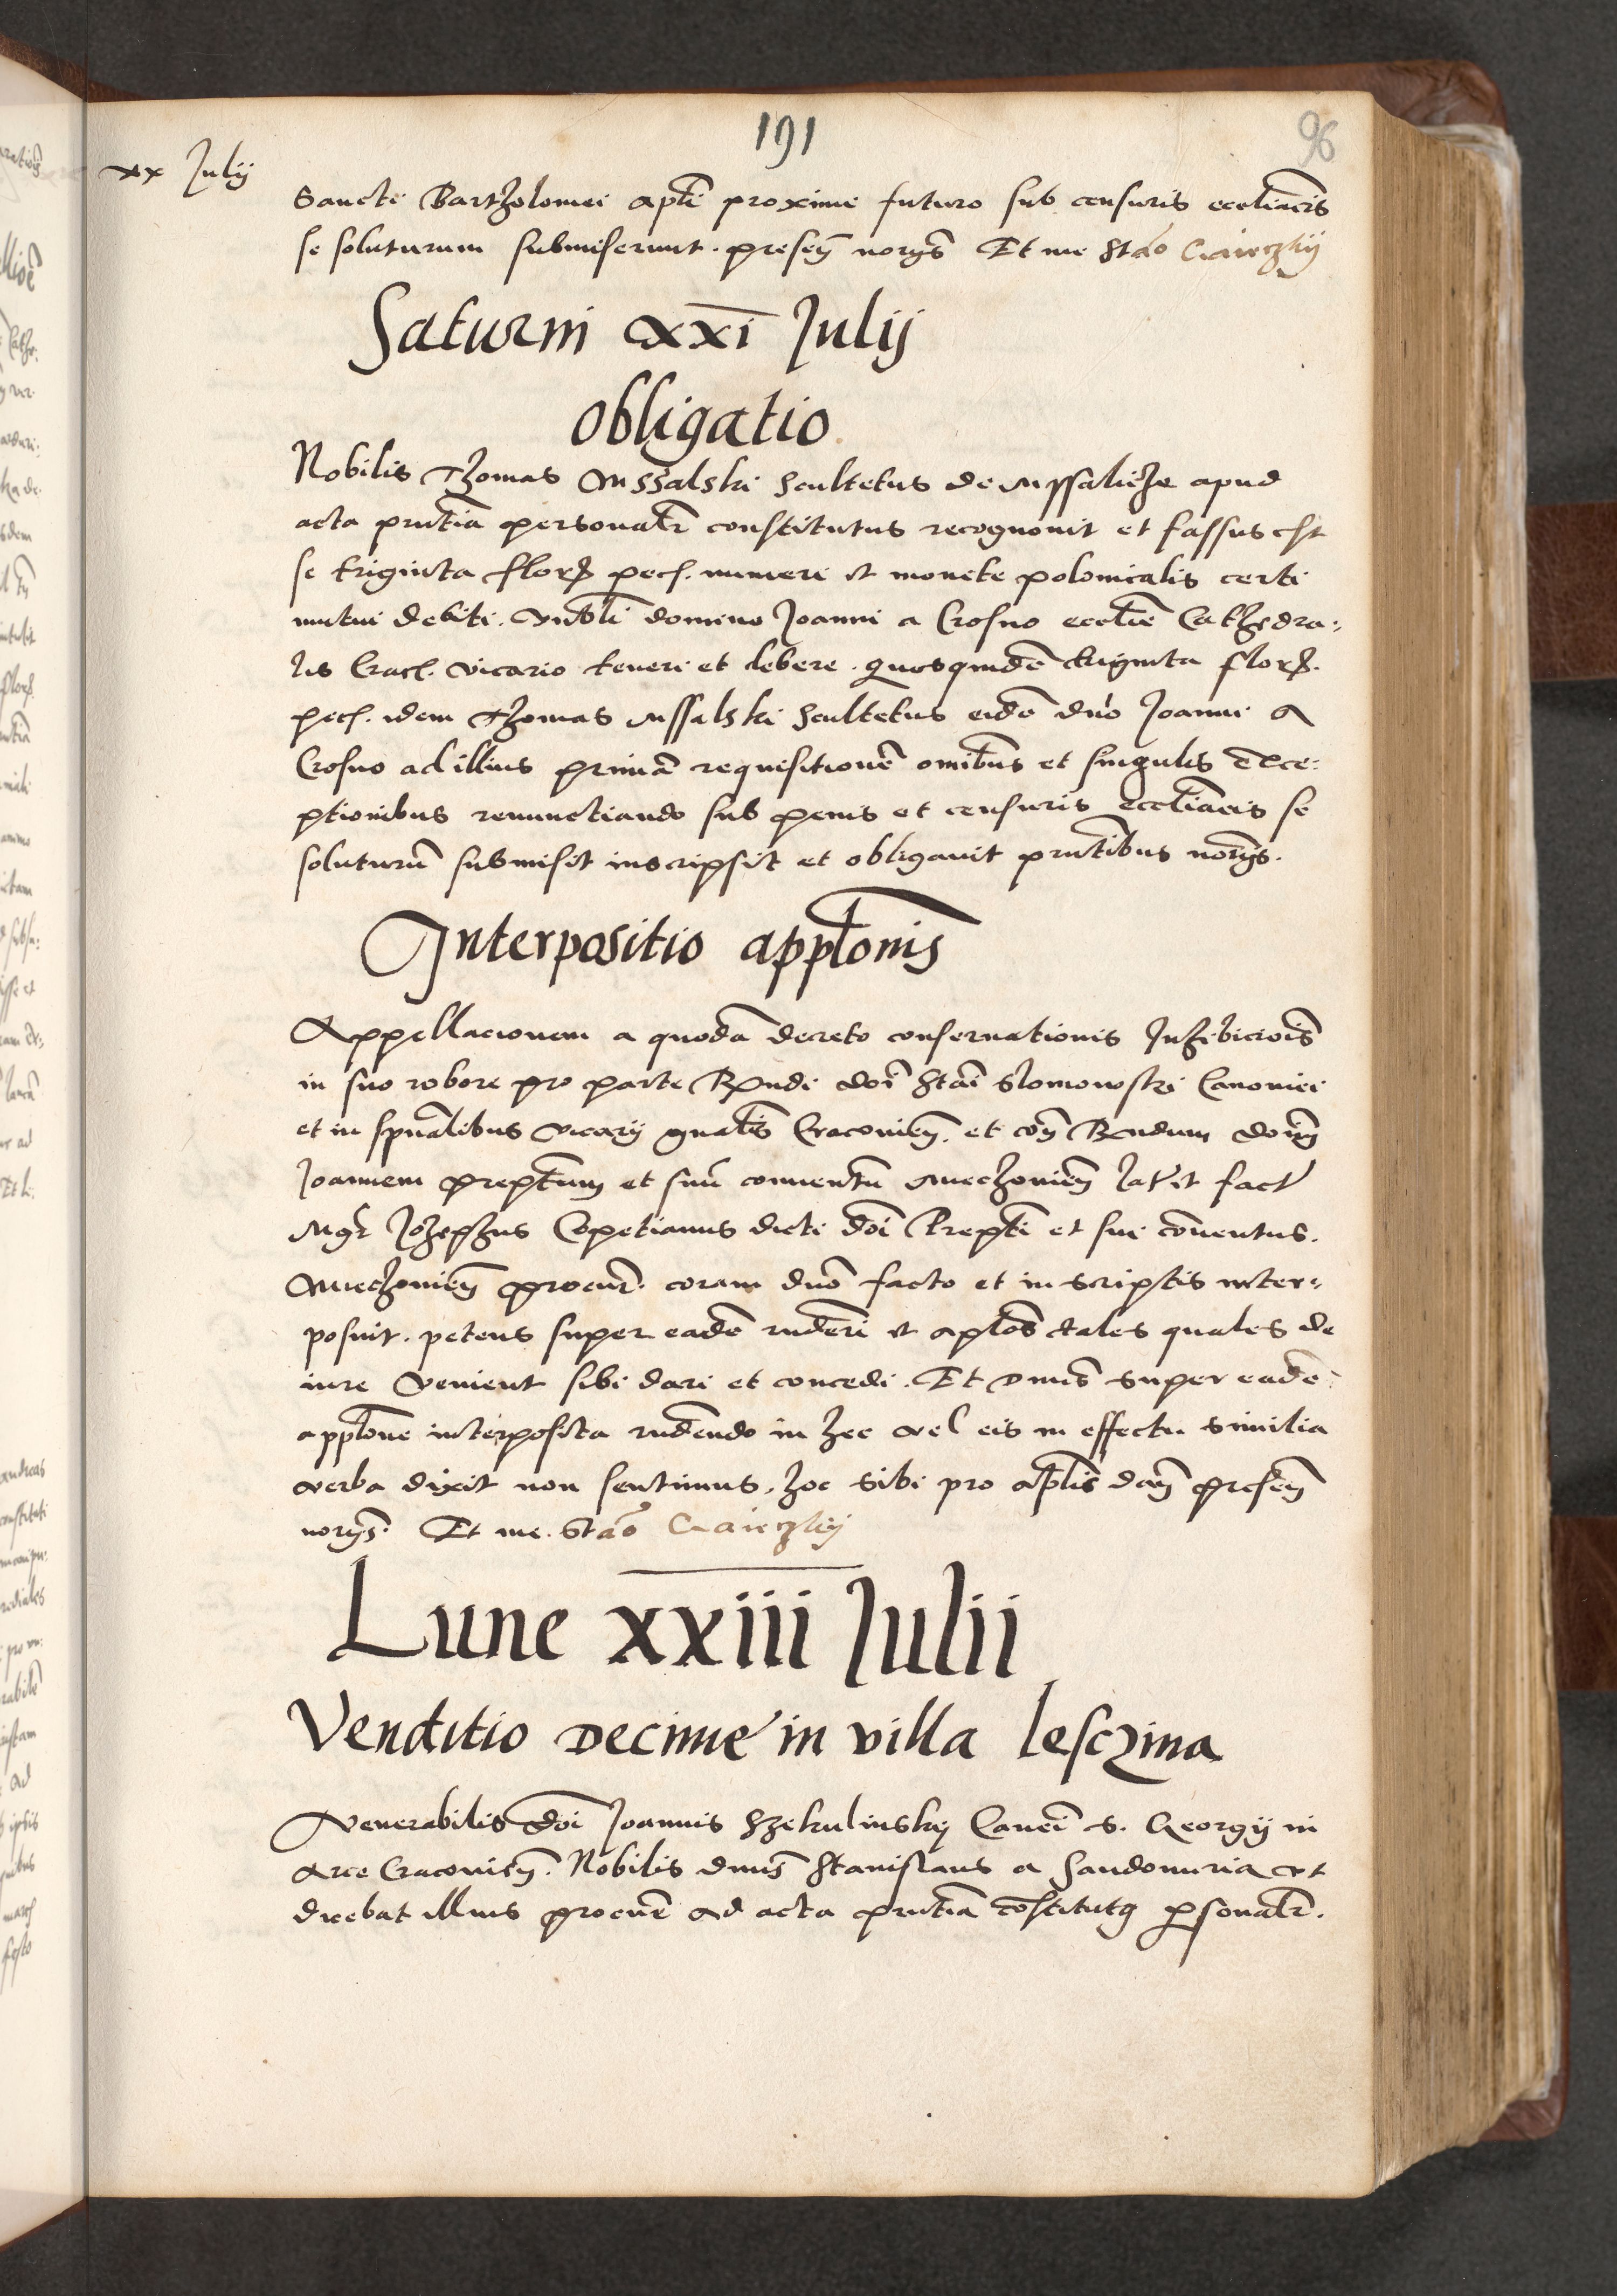 191
96
xx Julij
Sancti Bartholomei apłi proxime futuro sub censuris eccliacis
se soluturum submiserunt. presen̄ norijs Et me Stao
Saturni xxi Julij
obligatio
Nobilis Thomas Mssalski scultetus de Mssalicze apud
acta pn̄tia personalr constitutus recognouit et fassus est
se triginta florz pecl. numeri et monete polonicalis certi
mutui debiti. Vn̄bli domino Joanni a Crosno eccłie Cathedra-
lis Cracl. vicario teneri et debere. quosquidē triginta florz.
pecl. idem Thomas Mssalski scultetus eidē dn̄o Joanni a
Crosno ad illius primā requisitionē omībus et singulis exce-
ptionibus renunctiando sub penis et censuris eccliacis se
soluturū submisit inscripsit et obligauit pn̄tibus norijs.
Interpositio applonis
Appellacionem a quodā decreto conseruationis Inhibicioīs
in suo robore pro parte Rn̄di doī Stai Slomowski Canonici
et in spūalibus vicarij gn̄alis Cracouien̄. et con̄ Rn̄dum doīm
Joannem prepłum et suū conuentū Miechouien̄ lat et fact
Mgr Jozephus Copetianus dicti doī Prepłi et sui cōuentus.
Miechouien̄ procur. coram dn̄o facto et in scriptis inter-
posuit. petens super eadē rn̄deri et aplos tales quales de
iure venient sibi dari et concedi. Et Dn̄us super eadē
applone interposita rn̄dendo in hec vel eis in effectu similia
verba dixit non sentimus, hoc sibi pro aplis dan̄ presen̄
norijs. Et me. Stao
Lune xxiii Julii
Venditio Decime in villa lesczina
Venerabilis doī Joannis Szekulinskij Canēi S. Georgij in
arce Cracouien̄. Nobilis dn̄us Stanislaus a Sandomiria vt
dicebat illius procur ad acta pn̄tia cōstitutq psonalr.